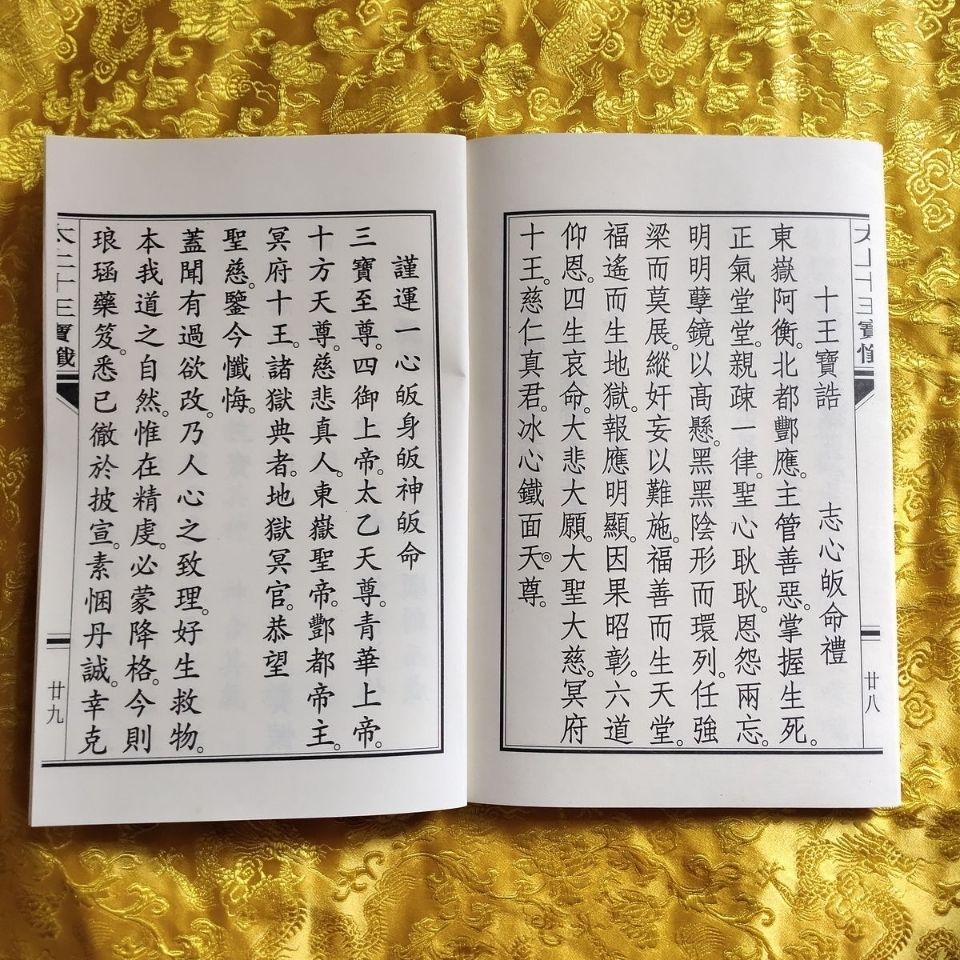 十王寶懺
廿八
十王寶誥　志心皈命禮
東嶽阿衡。北都酆應。主管善惡。掌握生死。
正氣堂堂。親疎一律。聖心耿耿。恩怨兩忘。
明明孽鏡以髙懸。黑黑陰形而環列。任強
梁而莫展。縱奸妄以難施。福善而生天堂。
福遙而生地獄。報應明顯。因果昭彰。六道
仰恩。四生哀命。大悲大願。大聖大慈。冥府
十王。慈仁真君。冰心鐵面天尊。
謹運一心皈身皈神皈命
三寶至尊。四御上帝。太乙天尊。青華上帝。
十方天尊。慈悲真人。東嶽聖帝。酆都帝主。
冥府十王。諸獄典者。地獄冥官。恭望
聖慈。鑒今懺悔。
蓋聞有過欲改。乃人心之致理。好生救物。
本我道之自然。惟在精虔。必蒙降格。今則
琅函藥笈。悉已徹於披宣。素悃丹誠。幸克
十王寶懺
廿九